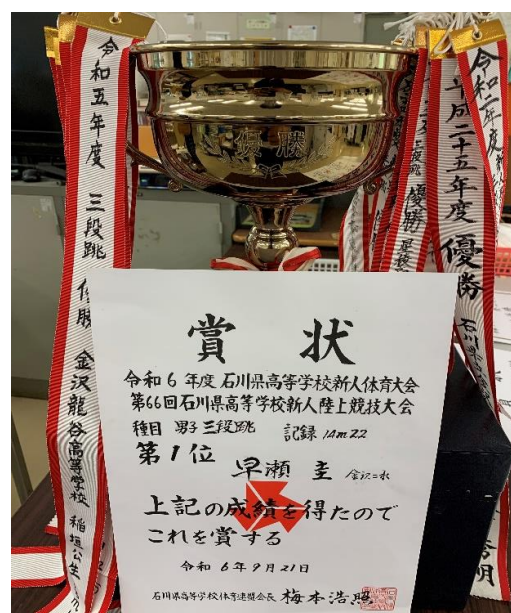 令和五年度 三段跳 優勝 金沢龍谷高等学校 稲垣公生
優勝
優勝
平成二十五年度 優勝 石川
令和二年度
賞 状
令和6年度 石川県高等学校新人体育大会
第66回石川県高等学校新人陸上競技大会
種目 男子三段跳 記録 14m22
第1位 早瀬 圭 金沢二水
上記の成績を得たので
これを賞する
令和 6年9月21日
石川県高等学校体育連盟会長 梅本浩照